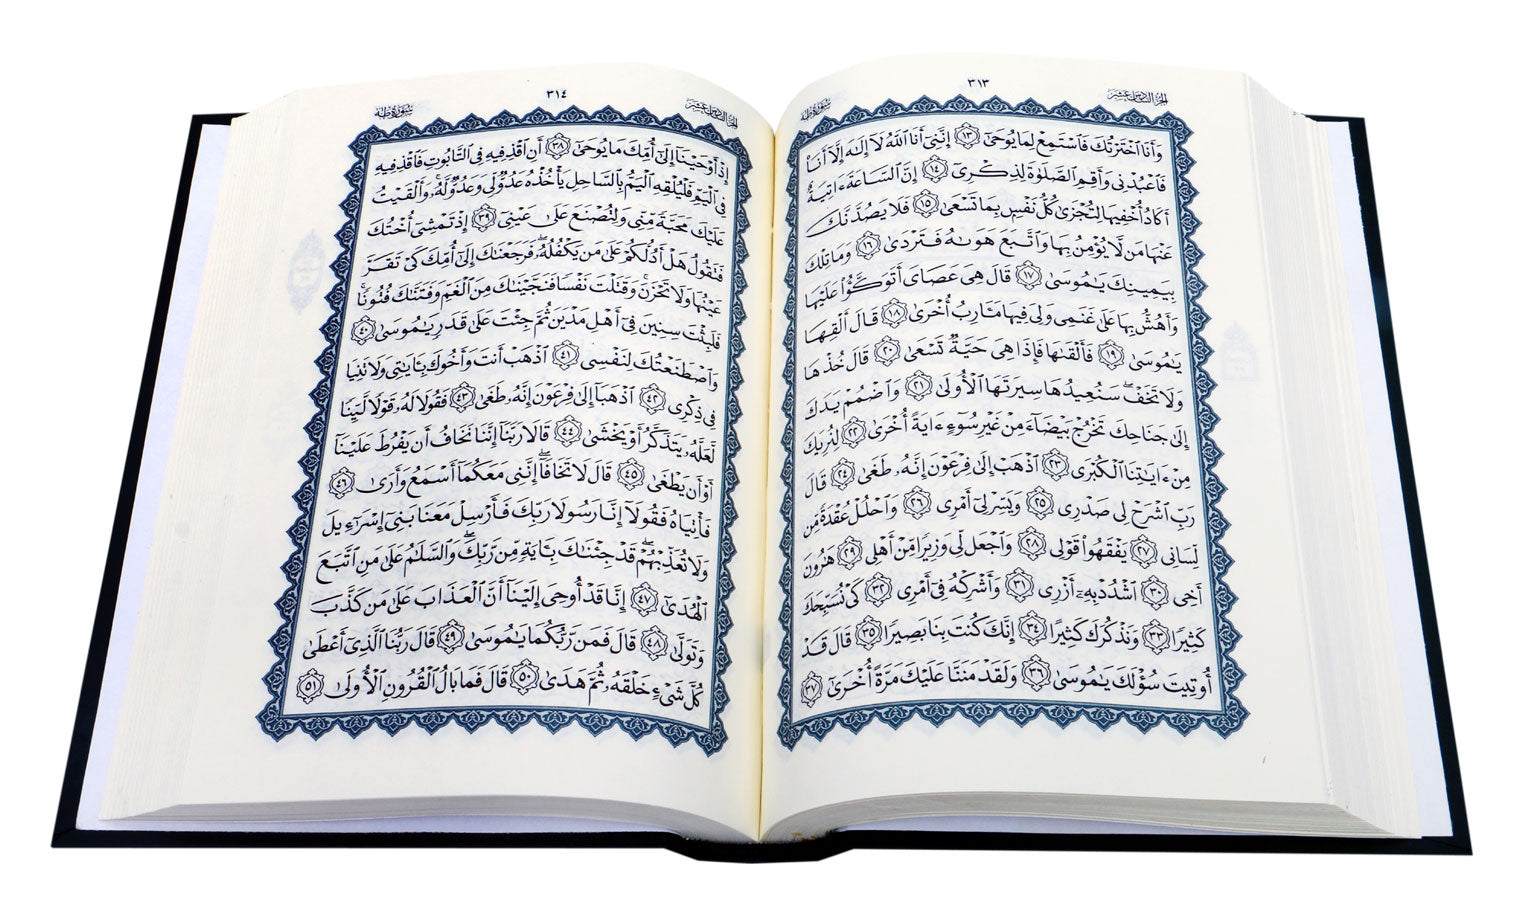 ٣١٣
الجزء السادس عشر
سورة طه
وَأَنَا ٱخْتَرْتُكَ فَٱسْتَمِعْ لِمَا يُوحَىٰٓ ١٣ إِنَّنِىٓ أَنَا ٱللَّهُ لَآ إِلَٰهَ إِلَّآ أَنَا۠
فَٱعْبُدْنِى وَأَقِمِ ٱلصَّلَوٰةَ لِذِكْرِىٓ ١٤ إِنَّ ٱلسَّاعَةَ ءَاتِيَةٌ
أَكَادُ أُخْفِيهَا لِتُجْزَىٰ كُلُّ نَفْسٍۭ بِمَا تَسْعَىٰ ١٥ فَلَا يَصُدَّنَّكَ
عَنْهَا مَن لَّا يُؤْمِنُ بِهَا وَٱتَّبَعَ هَوَىٰهُ فَتَرْدَىٰ ١٦ وَمَا تِلْكَ
بِيَمِينِكَ يَٰمُوسَىٰ ١٧ قَالَ هِىَ عَصَاىَ أَتَوَكَّؤُا۟ عَلَيْهَا
وَأَهُشُّ بِهَا عَلَىٰ غَنَمِى وَلِىَ فِيهَا مَـَٔارِبُ أُخْرَىٰ ١٨ قَالَ أَلْقِهَا
يَٰمُوسَىٰ ١٩ فَأَلْقَىٰهَا فَإِذَا هِىَ حَيَّةٌ تَسْعَىٰ ٢٠ قَالَ خُذْهَا
وَلَا تَخَفْ ۖ سَنُعِيدُهَا سِيرَتَهَا ٱلْأُولَىٰ ٢١ وَٱضْمُمْ يَدَكَ
إِلَىٰ جَنَاحِكَ تَخْرُجْ بَيْضَآءَ مِنْ غَيْرِ سُوٓءٍ ءَايَةً أُخْرَىٰ ٢٢ لِنُرِيَكَ
مِنْ ءَايَٰتِنَا ٱلْكُبْرَى ٢٣ ٱذْهَبْ إِلَىٰ فِرْعَوْنَ إِنَّهُۥ طَغَىٰ ٢٤ قَالَ
رَبِّ ٱشْرَحْ لِى صَدْرِى ٢٥ وَيَسِّرْ لِىٓ أَمْرِى ٢٦ وَٱحْلُلْ عُقْدَةً مِّن
لِّسَانِى ٢٧ يَفْقَهُوا۟ قَوْلِى ٢٨ وَٱجْعَل لِّى وَزِيرًا مِّنْ أَهْلِى ٢٩ هَٰرُونَ
أَخِى ٣٠ ٱشْدُدْ بِهِۦٓ أَزْرِى ٣١ وَأَشْرِكْهُ فِىٓ أَمْرِى ٣٢ كَىْ نُسَبِّحَكَ
كَثِيرًا ٣٣ وَنَذْكُرَكَ كَثِيرًا ٣٤ إِنَّكَ كُنتَ بِنَا بَصِيرًا ٣٥ قَالَ قَدْ
أُوتِيتَ سُؤْلَكَ يَٰمُوسَىٰ ٣٦ وَلَقَدْ مَنَنَّا عَلَيْكَ مَرَّةً أُخْرَىٰٓ ٣٧
٣١٤
الجزء السادس عشر
سورة طه
إِذْ أَوْحَيْنَآ إِلَىٰٓ أُمِّكَ مَا يُوحَىٰٓ ٣٨ أَنِ ٱقْذِفِيهِ فِى ٱلتَّابُوتِ فَٱقْذِفِيهِ
فِى ٱلْيَمِّ فَلْيُلْقِهِ ٱلْيَمُّ بِٱلسَّاحِلِ يَأْخُذْهُ عَدُوٌّ لِّى وَعَدُوٌّ لَّهُۥ ۚ وَأَلْقَيْتُ
عَلَيْكَ مَحَبَّةً مِّنِّى وَلِتُصْنَعَ عَلَىٰ عَيْنِىٓ ٣٩ إِذْ تَمْشِىٓ أُخْتُكَ
فَتَقُولُ هَلْ أَدُلُّكُمْ عَلَىٰ مَن يَكْفُلُهُۥ ۖ فَرَجَعْنَٰكَ إِلَىٰٓ أُمِّكَ كَىْ تَقَرَّ
عَيْنُهَا وَلَا تَحْزَنَ ۚ وَقَتَلْتَ نَفْسًا فَنَجَّيْنَٰكَ مِنَ ٱلْغَمِّ وَفَتَنَّٰكَ فُتُونًا ۚ
فَلَبِثْتَ سِنِينَ فِىٓ أَهْلِ مَدْيَنَ ثُمَّ جِئْتَ عَلَىٰ قَدَرٍ يَٰمُوسَىٰ ٤٠
وَٱصْطَنَعْتُكَ لِنَفْسِى ٤١ ٱذْهَبْ أَنتَ وَأَخُوكَ بِـَٔايَٰتِى وَلَا تَنِيَا
فِى ذِكْرِى ٤٢ ٱذْهَبَآ إِلَىٰ فِرْعَوْنَ إِنَّهُۥ طَغَىٰ ٤٣ فَقُولَا لَهُۥ قَوْلًا لَّيِّنًا
لَّعَلَّهُۥ يَتَذَكَّرُ أَوْ يَخْشَىٰ ٤٤ قَالَا رَبَّنَآ إِنَّنَا نَخَافُ أَن يَفْرُطَ عَلَيْنَآ
أَوْ أَن يَطْغَىٰ ٤٥ قَالَ لَا تَخَافَآ ۖ إِنَّنِى مَعَكُمَآ أَسْمَعُ وَأَرَىٰ ٤٦
فَأْتِيَاهُ فَقُولَآ إِنَّا رَسُولَا رَبِّكَ فَأَرْسِلْ مَعَنَا بَنِىٓ إِسْرَٰٓءِيلَ
وَلَا تُعَذِّبْهُمْ ۖ قَدْ جِئْنَٰكَ بِـَٔايَةٍ مِّن رَّبِّكَ ۖ وَٱلسَّلَٰمُ عَلَىٰ مَنِ ٱتَّبَعَ
ٱلْهُدَىٰٓ ٤٧ إِنَّا قَدْ أُوحِىَ إِلَيْنَآ أَنَّ ٱلْعَذَابَ عَلَىٰ مَن كَذَّبَ
وَتَوَلَّىٰ ٤٨ قَالَ فَمَن رَّبُّكُمَا يَٰمُوسَىٰ ٤٩ قَالَ رَبُّنَا ٱلَّذِىٓ أَعْطَىٰ
كُلَّ شَىْءٍ خَلْقَهُۥ ثُمَّ هَدَىٰ ٥٠ قَالَ فَمَا بَالُ ٱلْقُرُونِ ٱلْأُولَىٰ ٥١